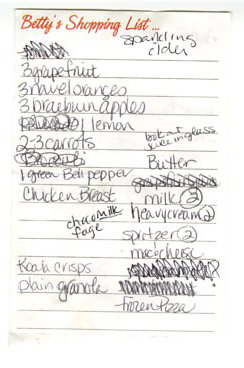 Betty's Shopping List...
sparkling
cider
3 grapefruit
3 navel oranges
3 braeburn apples
1 lemon
2-3 carrots
1 green Bell pepper
Chicken Breast
choco milk
fage
Koala crisps
plain granola
Butter
milk 2
heavy cream 2
spritzer 2
mac/cheese
frozen pizza